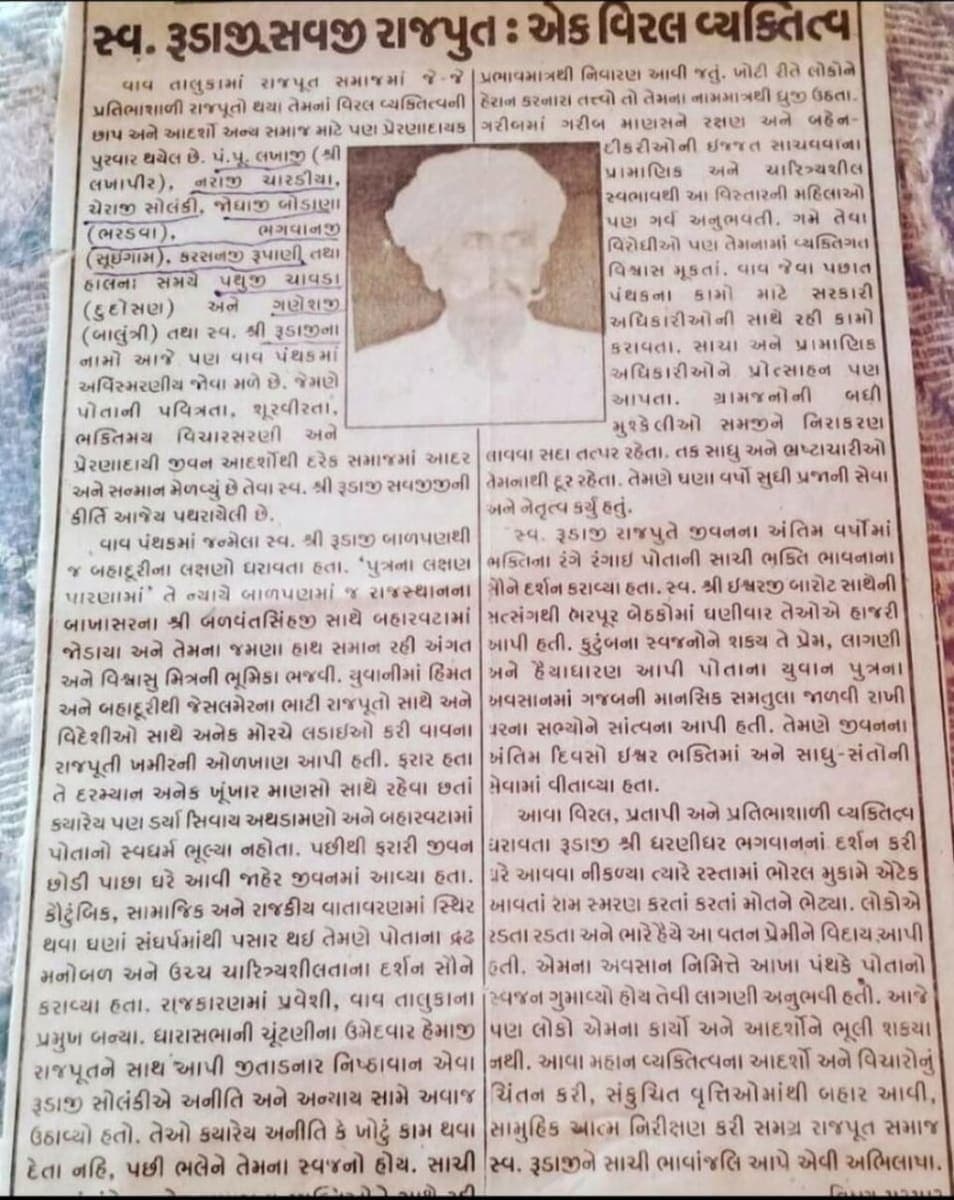 સ્વ. રૂડાજી સવજી રાજપુત : એક વિરલ વ્યક્તિત્વ
વાવ તાલુકામાં રાજપૂત સમાજમાં જે-જે
પ્રતિભાશાળી રાજપૂતો થયા તેમનાં વિરલ વ્યક્તિત્વની
છાપ અને આદર્શો અન્ય સમાજ માટે પણ પ્રેરણાદાયક
પુરવાર થયેલ છે. પં.પૂ. લખાજી (શ્રી
લખાપીર), નરાજી ચારડીયા,
ચેરાજી સોલંકી, જોધાજી બોડાણા
(ભરડવા), ભગવાનજી
(સૂઈગામ), કરસનજી રૂપાણી તથા
હાલના સમયે પથુજી ચાવડા
(દુદોસણ) અને ગણેશજી
(બાલુંત્રી) તથા સ્વ. શ્રી રૂડાજીના
નામો આજે પણ વાવ પંથકમાં
અવિસ્મરણીય જોવા મળે છે. જેમણે
પોતાની પવિત્રતા, શૂરવીરતા,
ભક્તિમય વિચારસરણી અને
પ્રેરણાદાયી જીવન આદર્શોથી દરેક સમાજમાં આદર
અને સન્માન મેળવ્યું છે તેવા સ્વ. શ્રી રૂડાજી સવજીજીની
કીર્તિ આજેય પથરાયેલી છે.
વાવ પંથકમાં જન્મેલા સ્વ. શ્રી રૂડાજી બાળપણથી
જ બહાદૂરીના લક્ષણો ધરાવતા હતા. 'પુત્રના લક્ષણ
પારણામાં' તે ન્યાયે બાળપણમાં જ રાજસ્થાનના
બાખાસરના શ્રી બળવંતસિંહજી સાથે બહારવટામાં
જોડાયા અને તેમના જમણા હાથ સમાન રહી અંગત
અને વિશ્વાસુ મિત્રની ભૂમિકા ભજવી. યુવાનીમાં હિંમત
અને બહાદૂરીથી જેસલમેરના ભાટી રાજપૂતો સાથે અને
વિદેશીઓ સાથે અનેક મોરચે લડાઈઓ કરી વાવના
રાજપૂતી ખમીરની ઓળખાણ આપી હતી. ફરાર હતા
તે દરમ્યાન અનેક ખૂંખાર માણસો સાથે રહેવા છતાં
કયારેય પણ ડર્યા સિવાય અથડામણો અને બહારવટામાં
પોતાનો સ્વધર્મ ભૂલ્યા નહોતા. પછીથી ફરારી જીવન
છોડી પાછા ઘરે આવી જાહેર જીવનમાં આવ્યા હતા.
કૌટુંબિક, સામાજિક અને રાજકીય વાતાવરણમાં સ્થિર
થવા ઘણાં સંઘર્ષમાંથી પસાર થઈ તેમણે પોતાના દ્રઢ
મનોબળ અને ઉચ્ચ ચારિત્ર્યશીલતાના દર્શન સૌને
કરાવ્યા હતા. રાજકારણમાં પ્રવેશી, વાવ તાલુકાના
પ્રમુખ બન્યા. ધારાસભાની ચૂંટણીના ઉમેદવાર હેમાજી
રાજપૂતને સાથ આપી જીતાડનાર નિષ્ઠાવાન એવા
રૂડાજી સોલંકીએ અનીતિ અને અન્યાય સામે અવાજ
ઉઠાવ્યો હતો. તેઓ કયારેય અનીતિ કે ખોટું કામ થવા
દેતા નહિ, પછી ભલેને તેમના સ્વજનો હોય. સાચી
પ્રભાવમાત્રથી નિવારણ આવી જતું. ખોટી રીતે લોકોને
હેરાન કરનારા તત્ત્વો તો તેમના નામમાત્રથી ધ્રુજી ઉઠતા.
ગરીબમાં ગરીબ માણસને રક્ષણ અને બહેન-
દીકરીઓની ઈજ્જત સાચવવાના
પ્રામાણિક અને ચારિત્ર્યશીલ
સ્વભાવથી આ વિસ્તારની મહિલાઓ
પણ ગર્વ અનુભવતી. ગમે તેવા
વિરોધીઓ પણ તેમનામાં વ્યક્તિગત
વિશ્વાસ મૂકતાં. વાવ જેવા પછાત
પંથકના કામો માટે સરકારી
અધિકારીઓની સાથે રહી કામો
કરાવતા. સાચા અને પ્રામાણિક
અધિકારીઓને પ્રોત્સાહન પણ
આપતા. ગ્રામજનોની બધી
મુશ્કેલીઓ સમજીને નિરાકરણ
લાવવા સદા તત્પર રહેતા. તક સાધુ અને ભ્રષ્ટાચારીઓ
તેમનાથી દૂર રહેતા. તેમણે ઘણા વર્ષો સુધી પ્રજાની સેવા
અને નેતૃત્વ કર્યું હતું.
સ્વ. રૂડાજી રાજપુતે જીવનના અંતિમ વર્ષોમાં
ભક્તિના રંગે રંગાઈ પોતાની સાચી ભક્તિ ભાવનાના
સૌને દર્શન કરાવ્યા હતા. સ્વ. શ્રી ઈશ્વરજી બારોટ સાથેની
સત્સંગથી ભરપૂર બેઠકોમાં ઘણીવાર તેઓએ હાજરી
આપી હતી. કુટુંબના સ્વજનોને શકય તે પ્રેમ, લાગણી
અને હૈયાધારણ આપી પોતાના યુવાન પુત્રના
અવસાનમાં ગજબની માનસિક સમતુલા જાળવી રાખી
ઘરના સભ્યોને સાંત્વના આપી હતી. તેમણે જીવનના
અંતિમ દિવસો ઈશ્વર ભક્તિમાં અને સાધુ-સંતોની
સેવામાં વીતાવ્યા હતા.
આવા વિરલ, પ્રતાપી અને પ્રતિભાશાળી વ્યક્તિત્વ
ધરાવતા રૂડાજી શ્રી ધરણીધર ભગવાનનાં દર્શન કરી
ઘરે આવવા નીકળ્યા ત્યારે રસ્તામાં ભોરલ મુકામે એટેક
આવતાં રામ સ્મરણ કરતાં કરતાં મોતને ભેટ્યા. લોકોએ
રડતા રડતા અને ભારે હૈયે આ વતન પ્રેમીને વિદાય આપી
હતી. એમના અવસાન નિમિત્તે આખા પંથકે પોતાનો
સ્વજન ગુમાવ્યો હોય તેવી લાગણી અનુભવી હતી. આજે
પણ લોકો એમના કાર્યો અને આદર્શોને ભૂલી શકયા
નથી. આવા મહાન વ્યક્તિત્વના આદર્શો અને વિચારોનું
ચિંતન કરી, સંકુચિત વૃત્તિઓમાંથી બહાર આવી,
સામુહિક આત્મ નિરીક્ષણ કરી સમગ્ર રાજપૂત સમાજ
સ્વ. રૂડાજીને સાચી ભાવાંજલિ આપે એવી અભિલાષા.